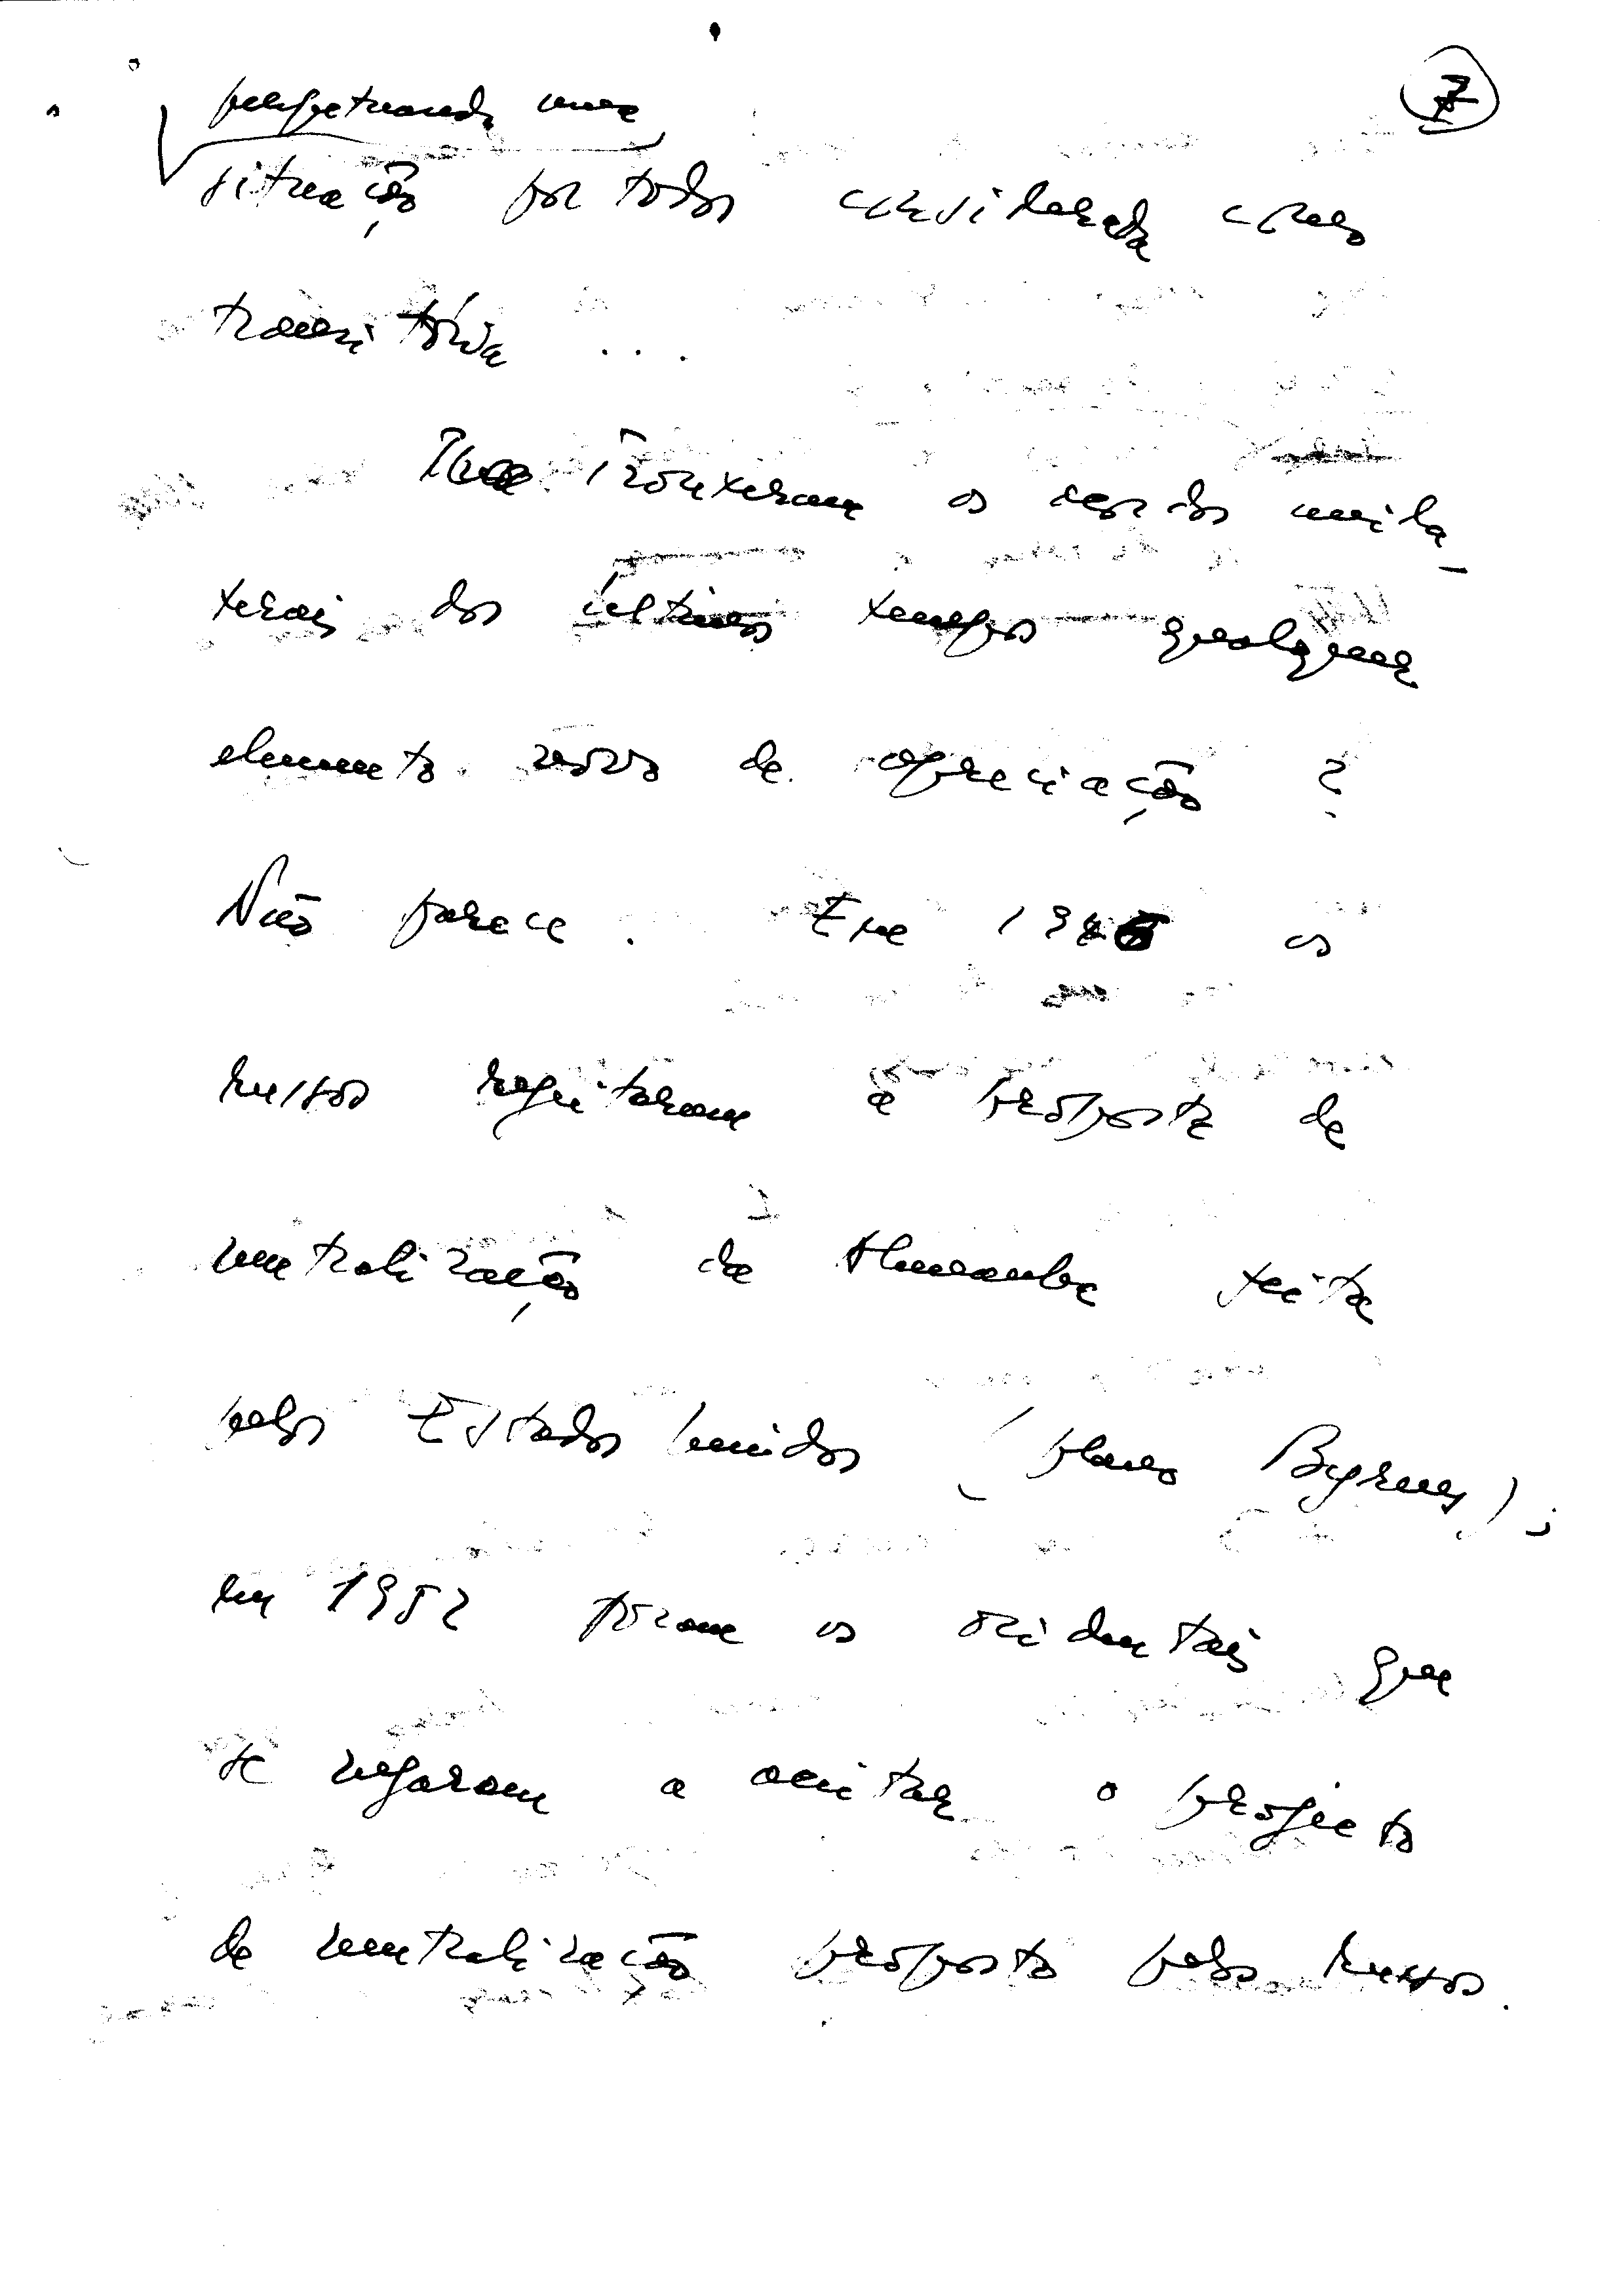 7
perpetuando uma
situação por todos considerada como
transitória ...
Trouxeram os acordos unila-
terais dos últimos tempos qualquer
elemento novo de apreciação ?
Não parece. Em 1946 os
russos rejeitaram a proposta de
neutralização da Alemanha feita
pelos Estados Unidos (plano Byrnes);
em 1952 foram os ocidentais que
se negaram a aceitar o projecto
de neutralização proposto pelos russos.